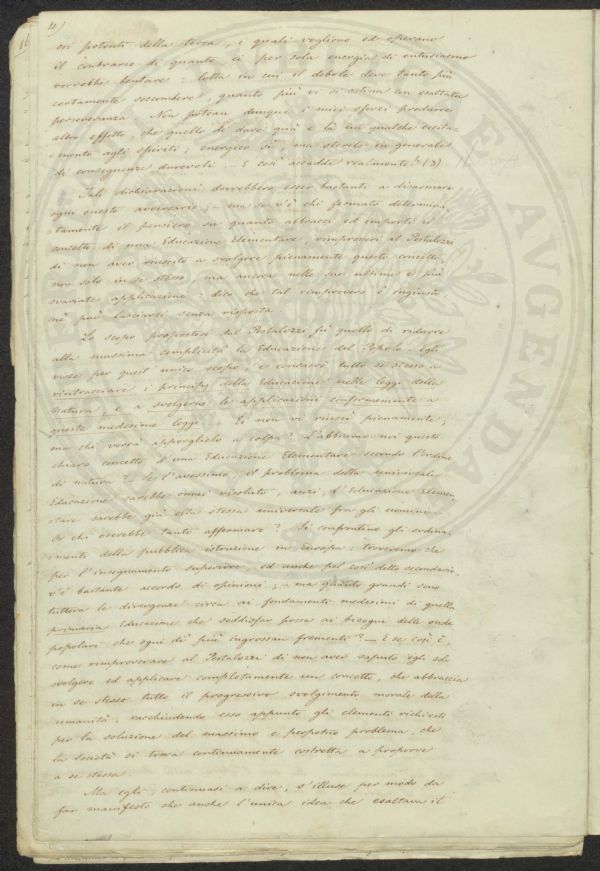 4)
16
cui potenti della terra, i quali vogliono ed operano
il contrario di quanto ei per sola energia di entusiasmo
vorrebbe tentare: lotta in cui il debole deve tanto più
certamente soccombere, quanto più vi si ostina con esaltata
perseveranza. Non potean dunque i miei sforzi produrre
altro effetto, che quello di dare quà e là un qualche eccita-
mento agli spiriti, energico sì, ma sterile in generale
di conseguenze durevoli. — E così accadde realmente! (3)
Tali dichiarazioni dovrebbero esser bastanti a disarmare
ogni onesto avversario, — ma se v'è chi fermato determina-
tamente il pensiero su quanto abbracci ed importi il
concetto di una Educazione Elementare, rimproveri al Pestalozzi
di non aver riuscito a svolgere pienamente questo concetto,
non solo in se stesso, ma ancora nelle sue ultime e più
svariate applicazioni: dico che tal rimprovero è ingiusto
nè può lasciarsi senza risposta.
Lo scopo propostosi dal Pestalozzi fù quello di ridurre
alla massima semplicità la Educazione del Popolo. Egli
visse per quest'unico scopo, e consacrò tutto se stesso a
rintracciare i principj della Educazione nelle leggi della
natura, e a svolgerne le applicazioni conformemente a
queste medesime leggi. Ei non vi riuscì pienamente;
ma chi vorrà apporglielo a colpa? L'abbiamo noi questo
chiaro concetto d'una Educazione Elementare secondo l'ordine
di natura? — Se l'avessimo, il problema della universale
Educazione sarebbe omai risoluto, anzi, l'Educazione Elemen-
tare sarebbe già ella stessa universale fra gli uomini.
Or chi oserebbe tanto affermare? Si confrontino gli ordina-
menti della pubblica istruzione in Europa: troveremo che
per l'insegnamento superiore, ed anche pel così detto secondario,
v'è bastante accordo di opinioni; — ma quanto grandi sono
tuttora le divergenze circa ai fondamenti medesimi di quella
primaria Educazione che soddisfar possa ai bisogni delle onde
popolari che ogni dì più ingrossan frementi? — E se così è,
come rimproverare al Pestalozzi di non aver saputo egli solo
svolgere ed applicare completamente un concetto, che abbraccia
in se stesso tutto il progressivo svolgimento morale della
umanità, racchiudendo esso appunto gli elementi richiesti
per la soluzione del massimo e perpetuo problema, che
la società si trova continuamente costretta a proporre
a se stessa.
Ma egli, continuasi a dire, s'illuse per modo da
far manifesto che anche l'unica idea che esaltava il